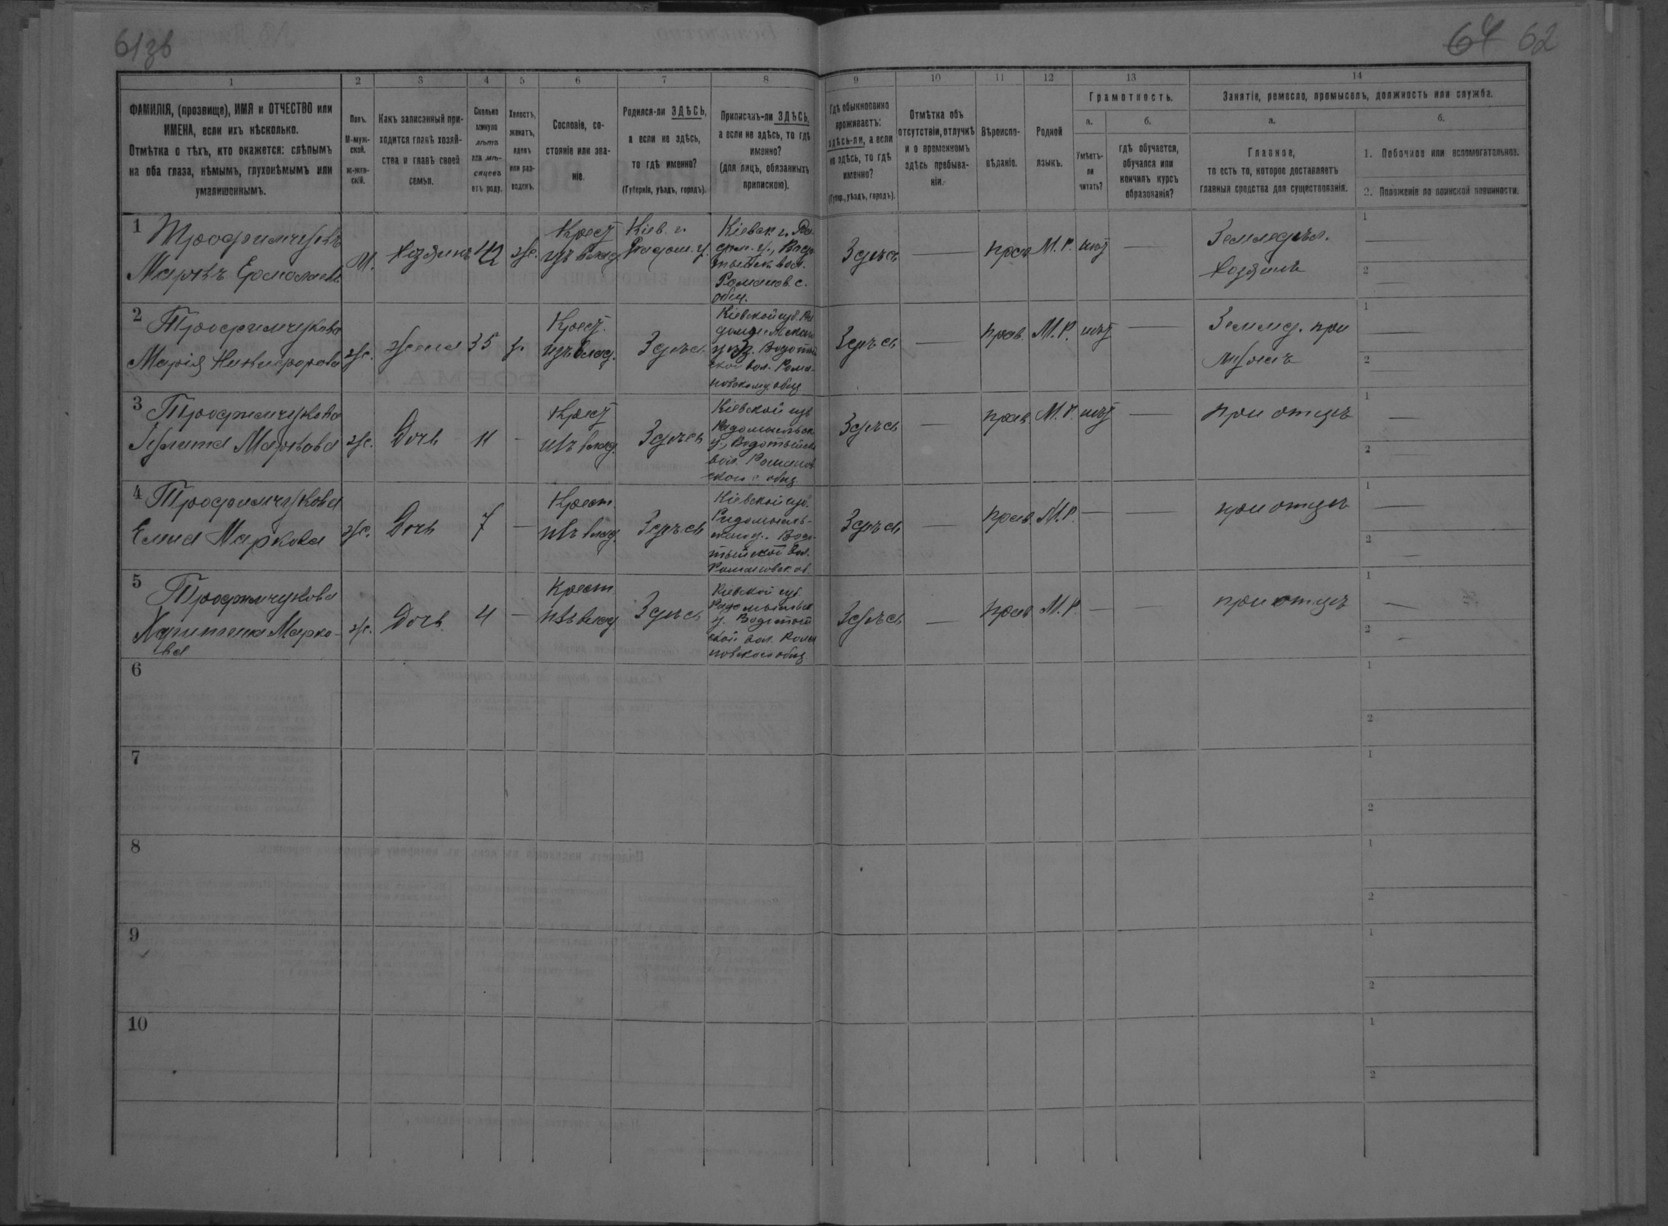 61зв
64 62
1
2
3
4
5
6
7
8
9
10
11
12
13
14
ФАМИЛІЯ, (прозвище), ИМЯ и ОТЧЕСТВО или
ИМЕНА, если ихъ нѣсколько.
Отмѣтка о тѣхъ, кто окажется: слѣпымъ
на оба глаза, нѣмымъ, глухонѣмымъ или
умалишоннымъ.
Полъ.
М-муж-
ской.
Ж-жен-
скій.
Какъ записанный при-
ходится главѣ хозяй-
ства и главѣ своей
семьи.
Сколько
минуло
лѣтъ
или мѣ-
сяцевъ
отъ роду.
Холостъ,
женатъ,
вдовъ
или раз-
веденъ.
Сословіе, со-
стояніе или зва-
ніе.
Родился-ли ЗДѢСЬ,
а если не здѣсь,
то гдѣ именно?
(Губернія, уѣздъ, городъ).
Приписанъ-ли ЗДѢСЬ,
а если не здѣсь, то гдѣ
именно?
(для лицъ, обязанныхъ
припискою).
Гдѣ обыкновенно
проживаетъ:
здѣсь-ли, а если
не здѣсь, то гдѣ
именно?
(Губер., уѣздъ, городъ).
Отмѣтка объ
отсутствіи, отлучкѣ
и о временномъ
здѣсь пребыва-
ніи.
Вѣроиспо-
вѣданіе.
Родной
языкъ.
Грамотность.
а.
б.
Умѣетъ-
ли
читать?
гдѣ обучается,
обучался или
кончилъ курсъ
образованія?
Занятіе, ремесло, промыселъ, должность или служба.
а.
б.
Главное,
то есть то, которое доставляетъ
главныя средства для существованія.
1. Побочное или вспомогательное.
2. Положеніе по воинской повинности.
1
Маркъ
М.
Хозяинъ
42
Крест
изъ влад
Кіев. г.
Кіевск. г.
Здѣсь
прав
М. Р.
нѣт
Земледѣл.
Хозяинъ
1
2
2
Трофимчукова
Марія Никифорова
ж.
жена
35
Крест.
изъ влад.
Здѣсь
Кіевской губ.
Здѣсь
прав.
М. Р.
нѣт
Землед. при
мужѣ
1
2
3
Трофимчукова
Маркова
ж.
Дочь
11
Крест
изъ влад.
Здѣсь
Кіевской губ
Здѣсь
прав
М. Р.
нѣт
при отцѣ
1
2
4
Трофимчукова
Елена Маркова
ж.
Дочь
7
Крест.
изъ влад.
Здѣсь
Кіевской губ.
Здѣсь
прав.
М. Р.
при отцѣ
1
2
5
Трофимчукова
Марко-
ва
ж.
Дочь
4
Крест
изъ влад
Здѣсь
Кіевской губ.
Здѣсь
прав.
М. Р.
при отцѣ
1
2
6
1
2
7
1
2
8
1
2
9
1
2
10
1
2